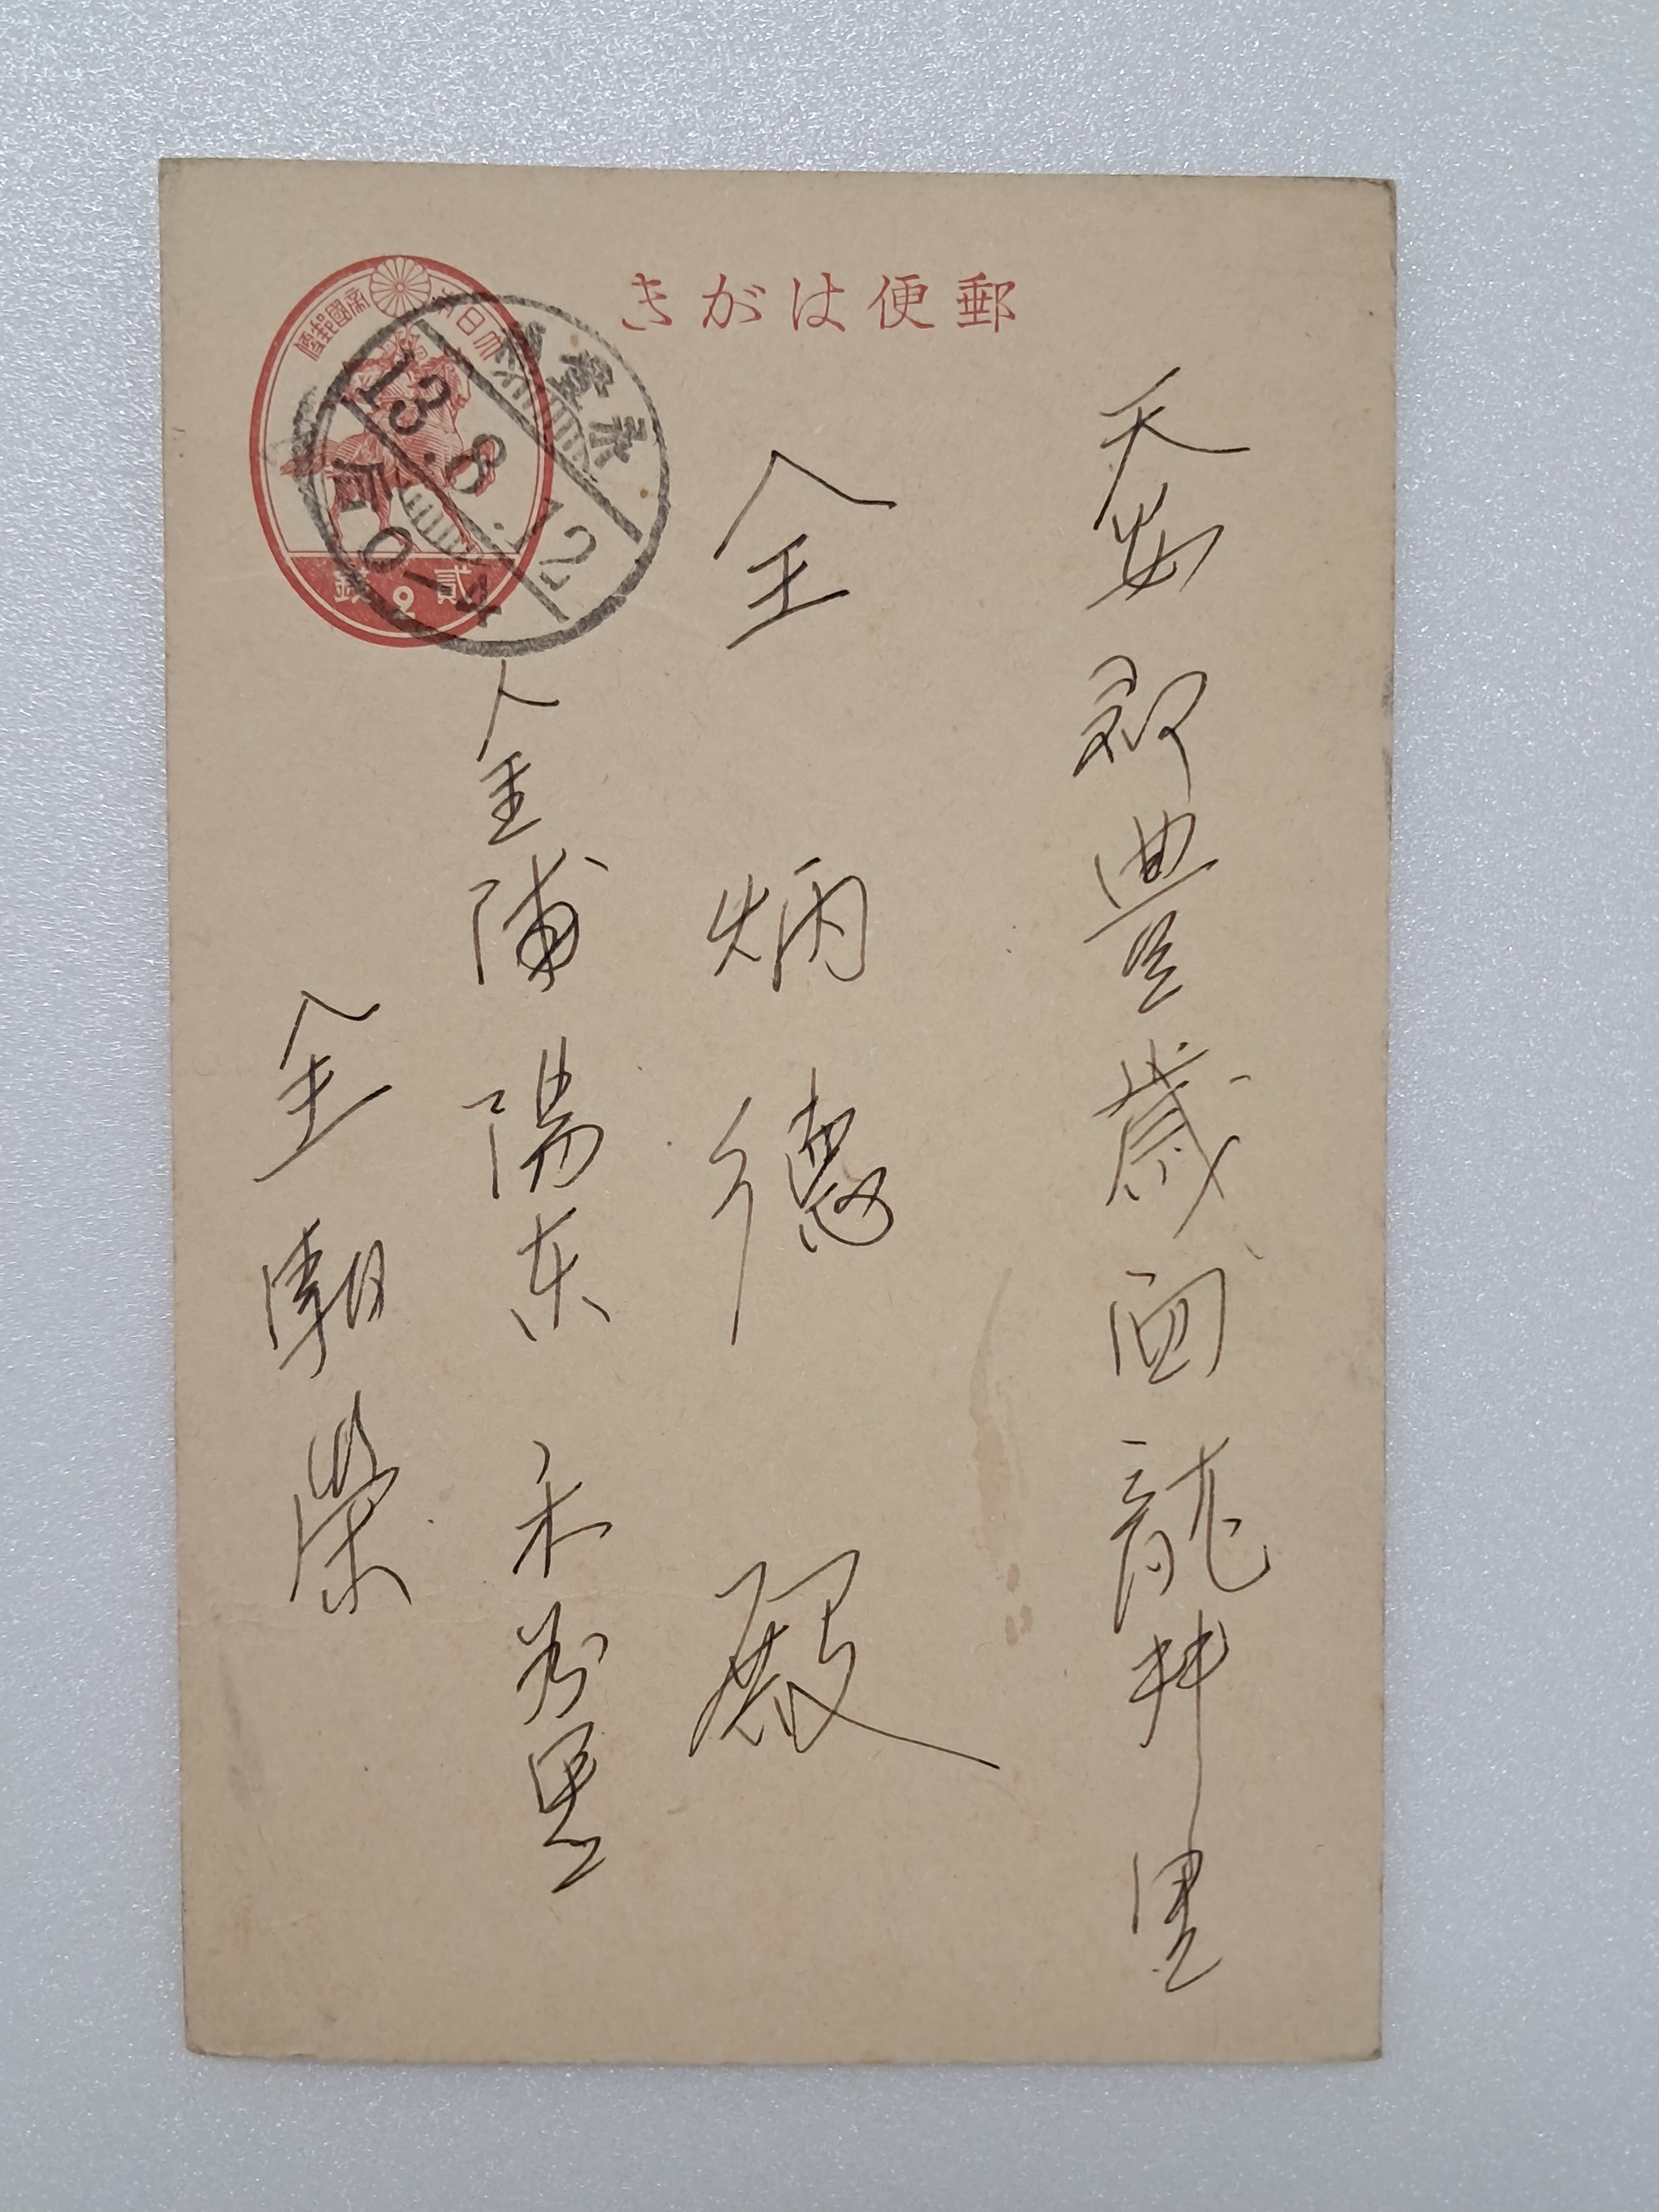 郵便はがき
大日本帝國郵便
貳錢
2
永登浦
13.8.12
后0-4
天安郡豊歳面龍井里
全炳德殿
金浦陽東禾谷里
全朝榮